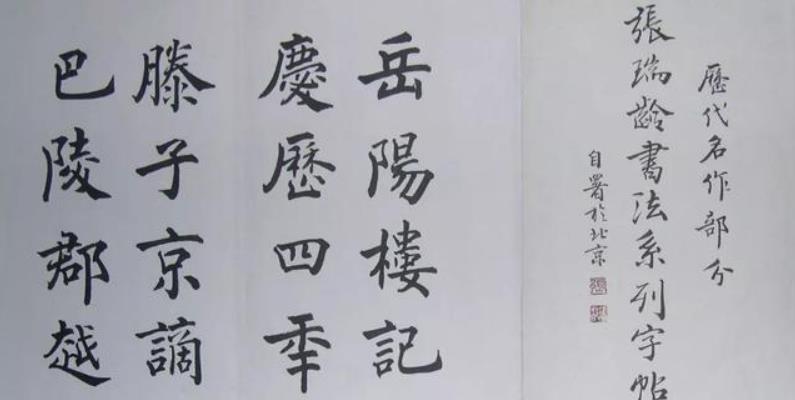 歷代名作部分
張瑞齡書法系列字帖
自署於北京
岳陽樓記
慶歷四年
滕子京謫
巴陵郡越